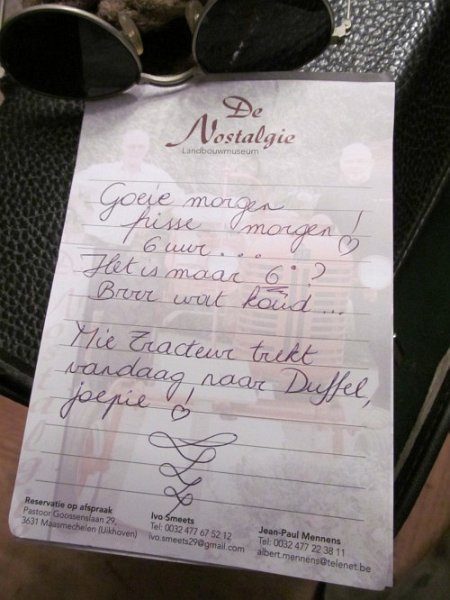 De
Nostalgie
Landbouwmuseum
Goeie morgen
pisse morgen!
6 uur...
Het is maar 6°?
Brrr wat koud...
Mie Tracteur trekt
vandaag naar Duffel,
joepie!
Reservatie op afspraak
Pastoor Goossenslaan 29,
3631 Maasmechelen (Uikhoven)
Ivo Smeets
Tel: 0032 477 67 52 12
ivo.smeets29@gmail.com
Jean-Paul Mennens
Tel: 0032 477 22 38 11
albert.mennens@telenet.be